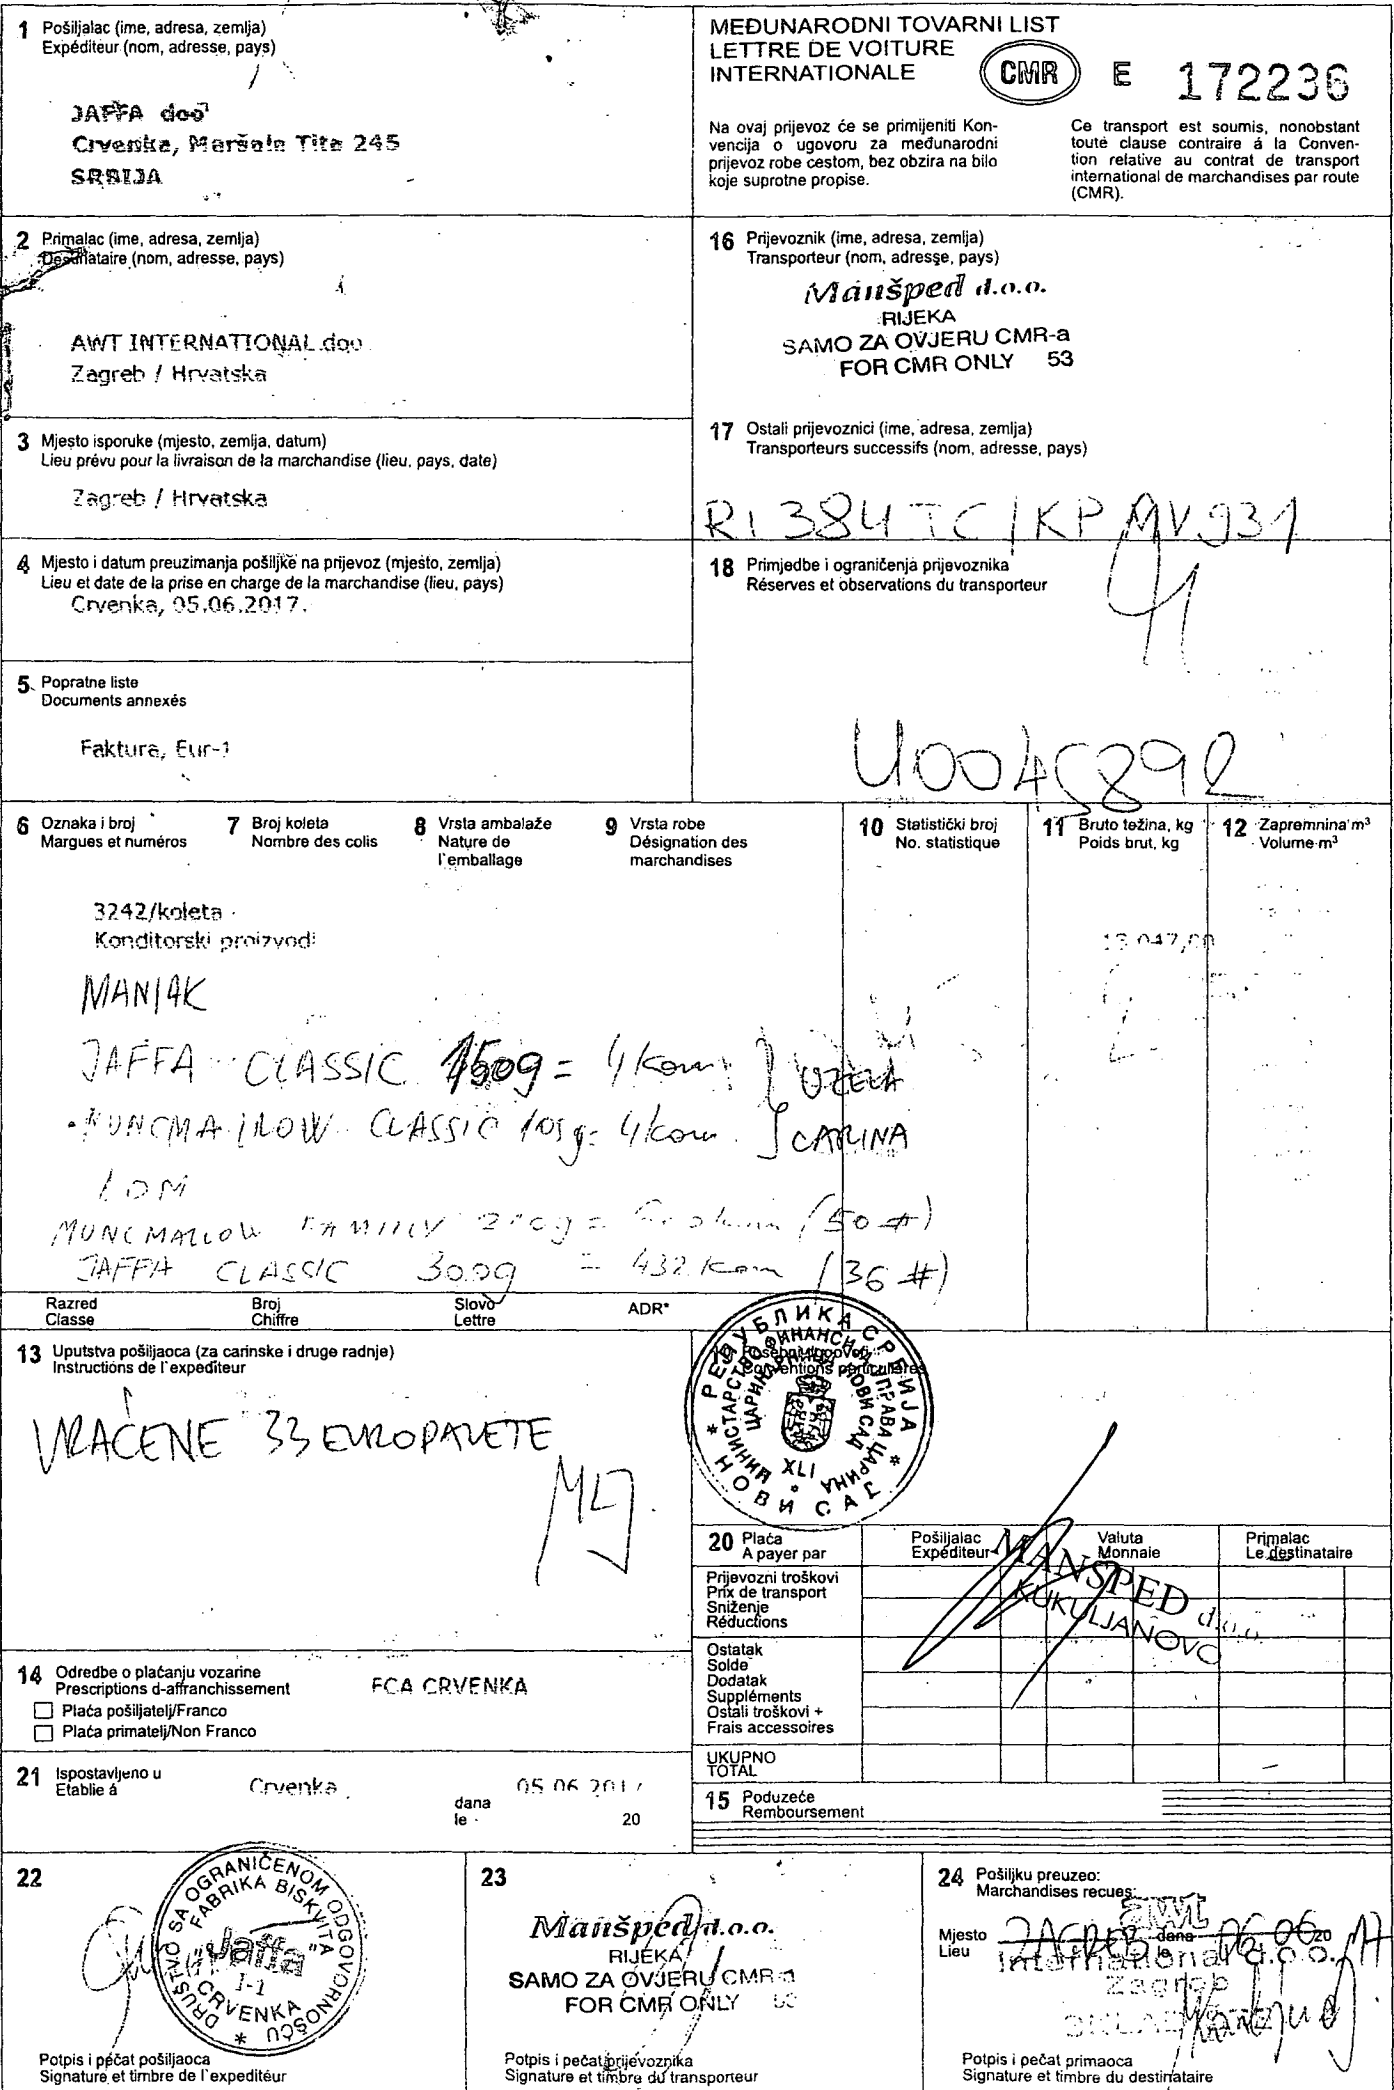 1 Pošiljalac (ime, adresa, zemlja)
Expéditeur (nom, adresse, pays)
JAFFA doo
Crvenka, Maršala Tita 245
SRBIJA
MEĐUNARODNI TOVARNI LIST
LETTRE DE VOITURE
INTERNATIONALE
CMR
E 172236
Na ovaj prijevoz će se primijeniti Kon-
vencija o ugovoru za međunarodni
prijevoz robe cestom, bez obzira na bilo
koje suprotne propise.
Ce transport est soumis, nonobstant
touté clause contraire á la Conven-
tion relative au contrat de transport
international de marchandises par route
(CMR).
2 Primalac (ime, adresa, zemlja)
Destinataire (nom, adresse, pays)
AWT INTERNATIONAL doo
Zagreb / Hrvatska
16 Prijevoznik (ime, adresa, zemlja)
Transporteur (nom, adresse, pays)
Manšped d.o.o.
RIJEKA
SAMO ZA OVJERU CMR-a
FOR CMR ONLY 53
3 Mjesto isporuke (mjesto, zemlja, datum)
Lieu prévu pour la livraison de la marchandise (lieu, pays, date)
Zagreb / Hrvatska
17 Ostali prijevoznici (ime, adresa, zemlja)
Transporteurs successifs (nom, adresse, pays)
RI 384 TC / KP MV 931
4 Mjesto i datum preuzimanja pošiljke na prijevoz (mjesto, zemlja)
Lieu et date de la prise en charge de la marchandise (lieu, pays)
Crvenka, 05.06.2017.
18 Primjedbe i ograničenja prijevoznika
Réserves et observations du transporteur
5. Popratne liste
Documents annexés
Faktura, Eur-1
U0045892
6 Oznaka i broj
Margues et numéros
7 Broj koleta
Nombre des colis
8 Vrsta ambalaže
Nature de
l`emballage
9 Vrsta robe
Désignation des
marchandises
10 Statistički broj
No. statistique
11 Bruto težina, kg
Poids brut, kg
12 Zapremnina m³
Volume m³
3242/koleta
Konditorski proizvodi
13.047,00
MANJAK
JAFFA CLASSIC 150g = 4 kom } UZELA
MUNCMALLOW CLASSIC 105g = 4 kom } CARINA
LOM
MUNCMALLOW FAMILY 210g = (50 #)
JAFFA CLASSIC 300g = 432 kom (36 #)
Razred
Classe
Broj
Chiffre
Slovo
Lettre
ADR*
13 Uputstva pošiljaoca (za carinske i druge radnje)
Instructions de l`expediteur
VRAĆENE 33 EUROPALETE
MLJ.
Conventions particulières
РЕПУБЛИКА СРБИЈА
МИНИСТАРСТВО ФИНАНСИЈА УПРАВА ЦАРИНА
ЦАРИНАРНИЦА НОВИ САД
XLI
НОВИ САД
20 Plaća
A payer par
Pošiljalac
Expéditeur
Valuta
Monnaie
Primalac
Le destinataire
Prijevozni troškovi
Prix de transport
Sniženje
Réductions
MANSPED d.o.o.
KUKULJANOVO
Ostatak
Solde
Dodatak
Suppléments
Ostali troškovi +
Frais accessoires
UKUPNO
TOTAL
14 Odredbe o plaćanju vozarine
Prescriptions d-affranchissement
FCA CRVENKA
Plaća pošiljatelj/Franco
Plaća primatelj/Non Franco
21 Ispostavljeno u
Etablie á
Crvenka
05.06.2017
dana
le
20
15 Poduzeće
Remboursement
22
DRUŠTVO SA OGRANIČENOM ODGOVORNOŠĆU
FABRIKA BISKVITA
„Jaffa"
I-1
CRVENKA
Potpis i pečat pošiljaoca
Signature et timbre de l`expediteur
23
Manšped d.o.o.
RIJEKA
SAMO ZA OVJERU CMR-a
FOR CMR ONLY 53
Potpis i pečat prijevoznika
Signature et timbre du transporteur
24 Pošiljku preuzeo:
Marchandises recues:
awt
Mjesto
Lieu
ZAGREB dana 06.06. 20 17
le
International d.o.o.
Zagreb
Potpis i pečat primaoca
Signature et timbre du destinataire